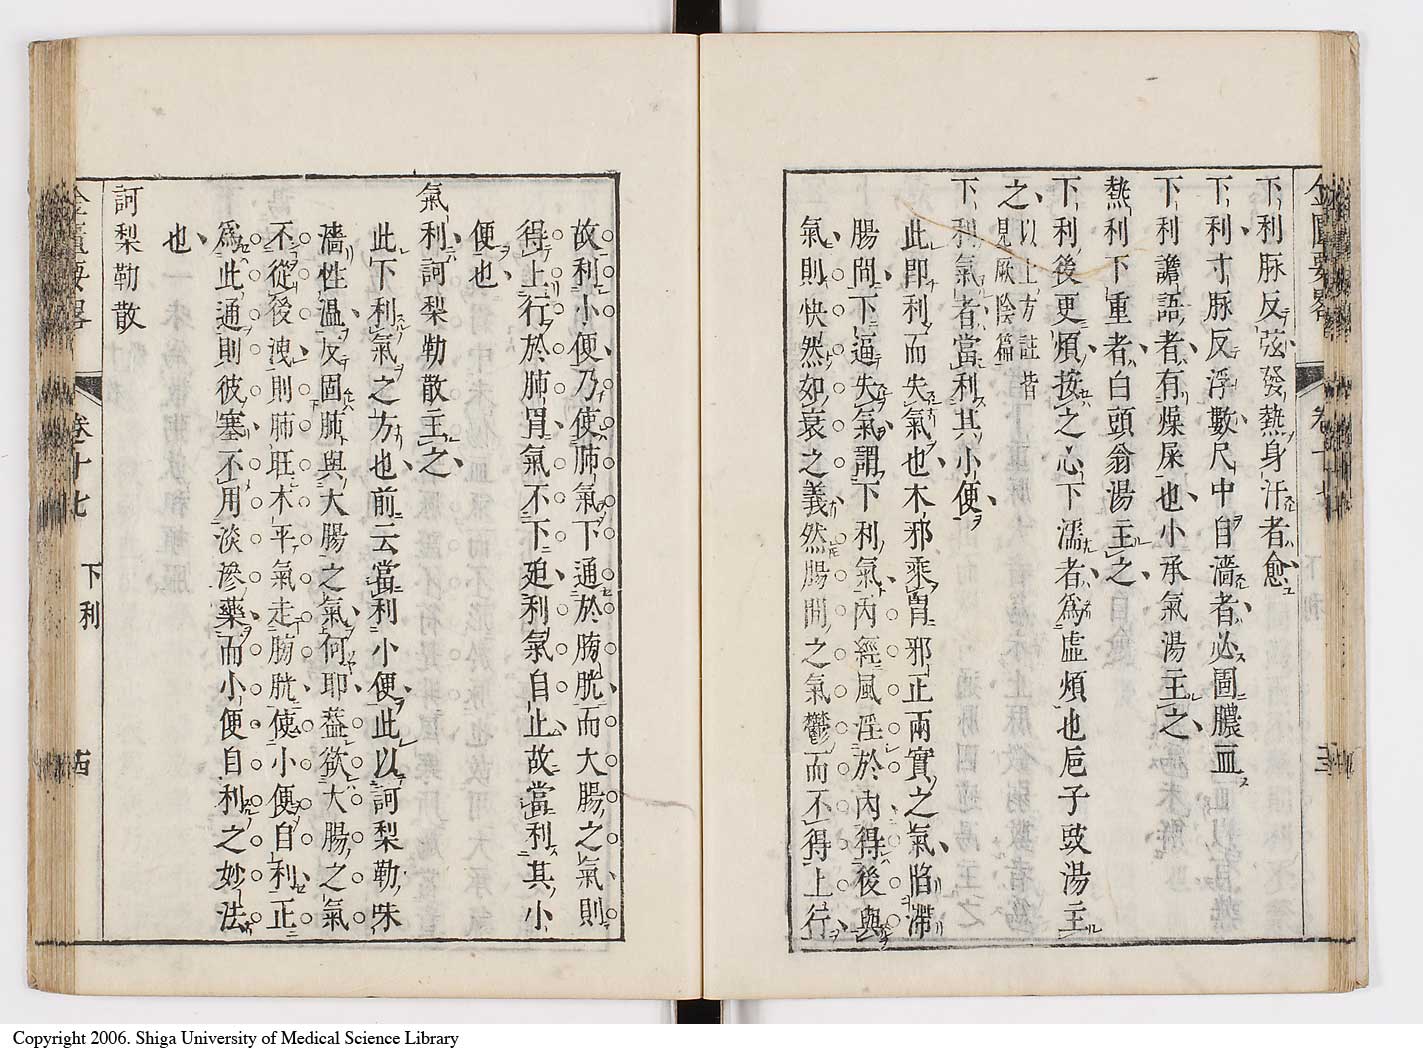 下利脉反弦發熱身汗者愈
下利寸脉反浮數尺中自濇者必圊膿血
下利讝語者有燥屎也小承氣湯主之
熱利下重者白頭翁湯主之
下利後更煩按之心下濡者爲虛煩也巵子豉湯主
之以上方註皆
見厥陰篇
下利氣者當利其小便
此即利而失氣也木邪乘胃邪正兩實之氣陷滯
腸間下逼失氣謂下利氣内經風淫於内得後與
氣則快然如衰之義然腸間之氣鬱而不得上行
卷十七
下利
故利小便乃使肺氣下通於膀胱而大腸之氣則
得上行於肺胃氣不下廹利氣自止故當利其小
便也
氣利訶梨勒散主之
此下利氣之方也前云當利小便此以訶梨勒味
濇性溫反固肺與大腸之氣何耶葢欲大腸之氣
不從後洩則肺旺木平氣走膀胱使小便自利正
爲此通則彼塞不用淡滲藥而小便自利之妙法
也
訶梨勒散
卷十七
下利